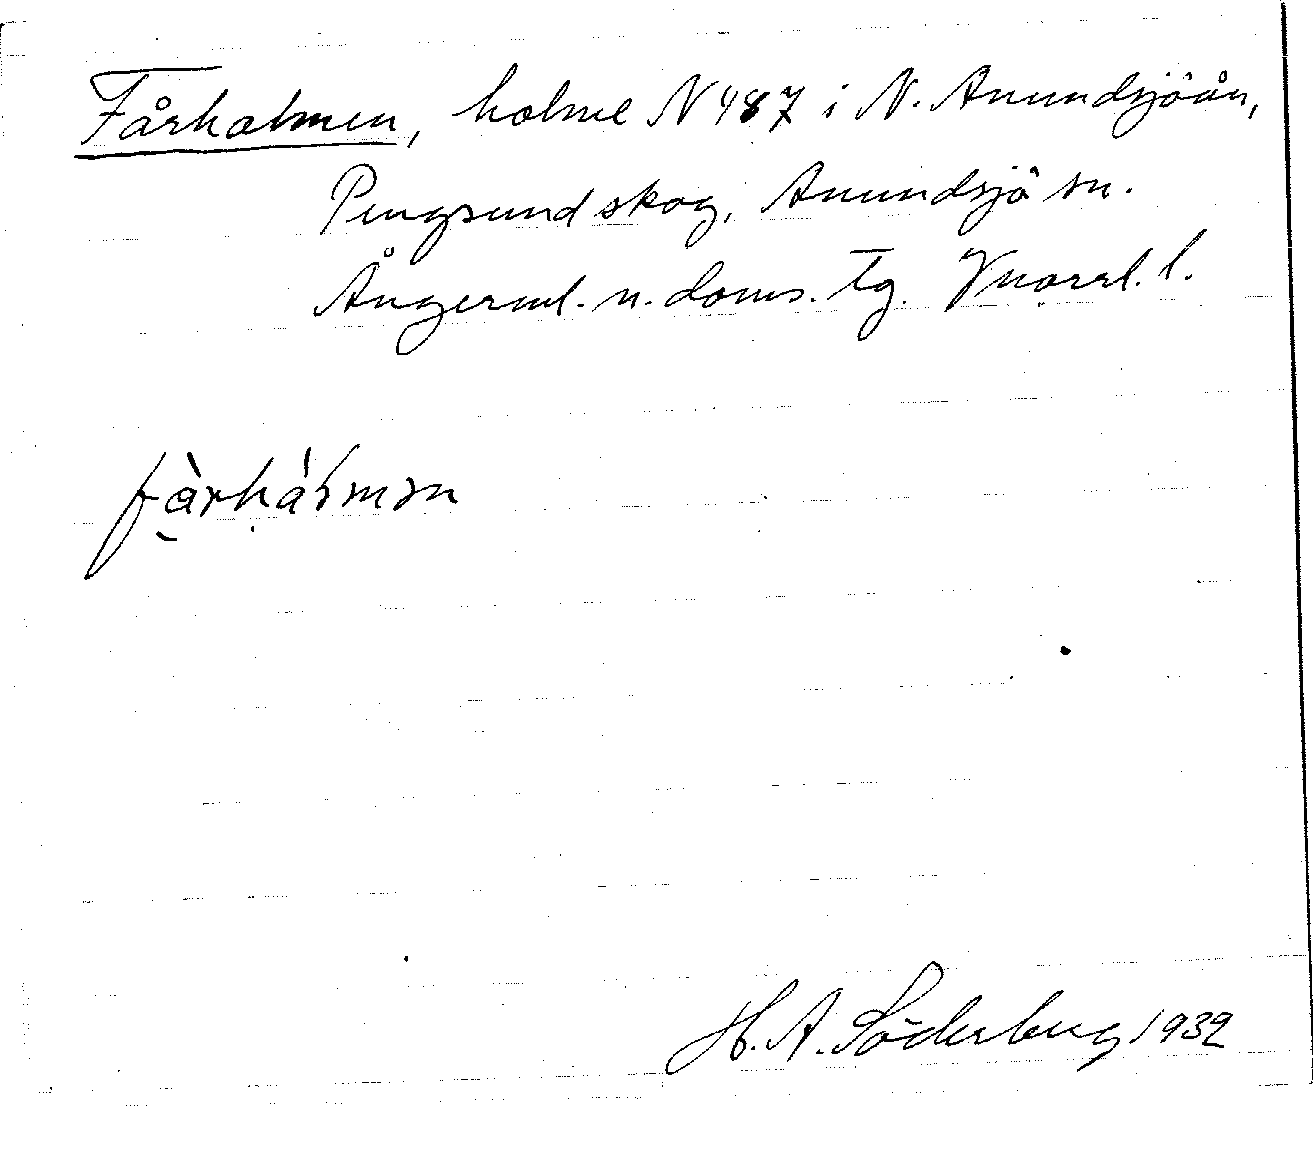 Fårholmen, holme N 487 i N. Anundsjöån,
Pengsund skog, Anundsjö sn.
Ångerml. n. doms. tg. Vnorrl. l.
H. A. Söderberg 1932